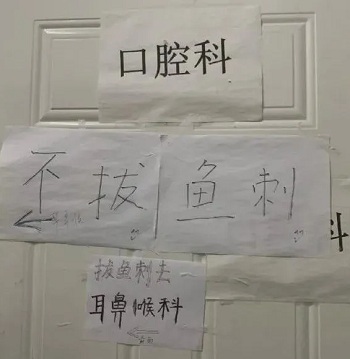 口腔科
不拔鱼刺
科
拔鱼刺去
耳鼻喉科